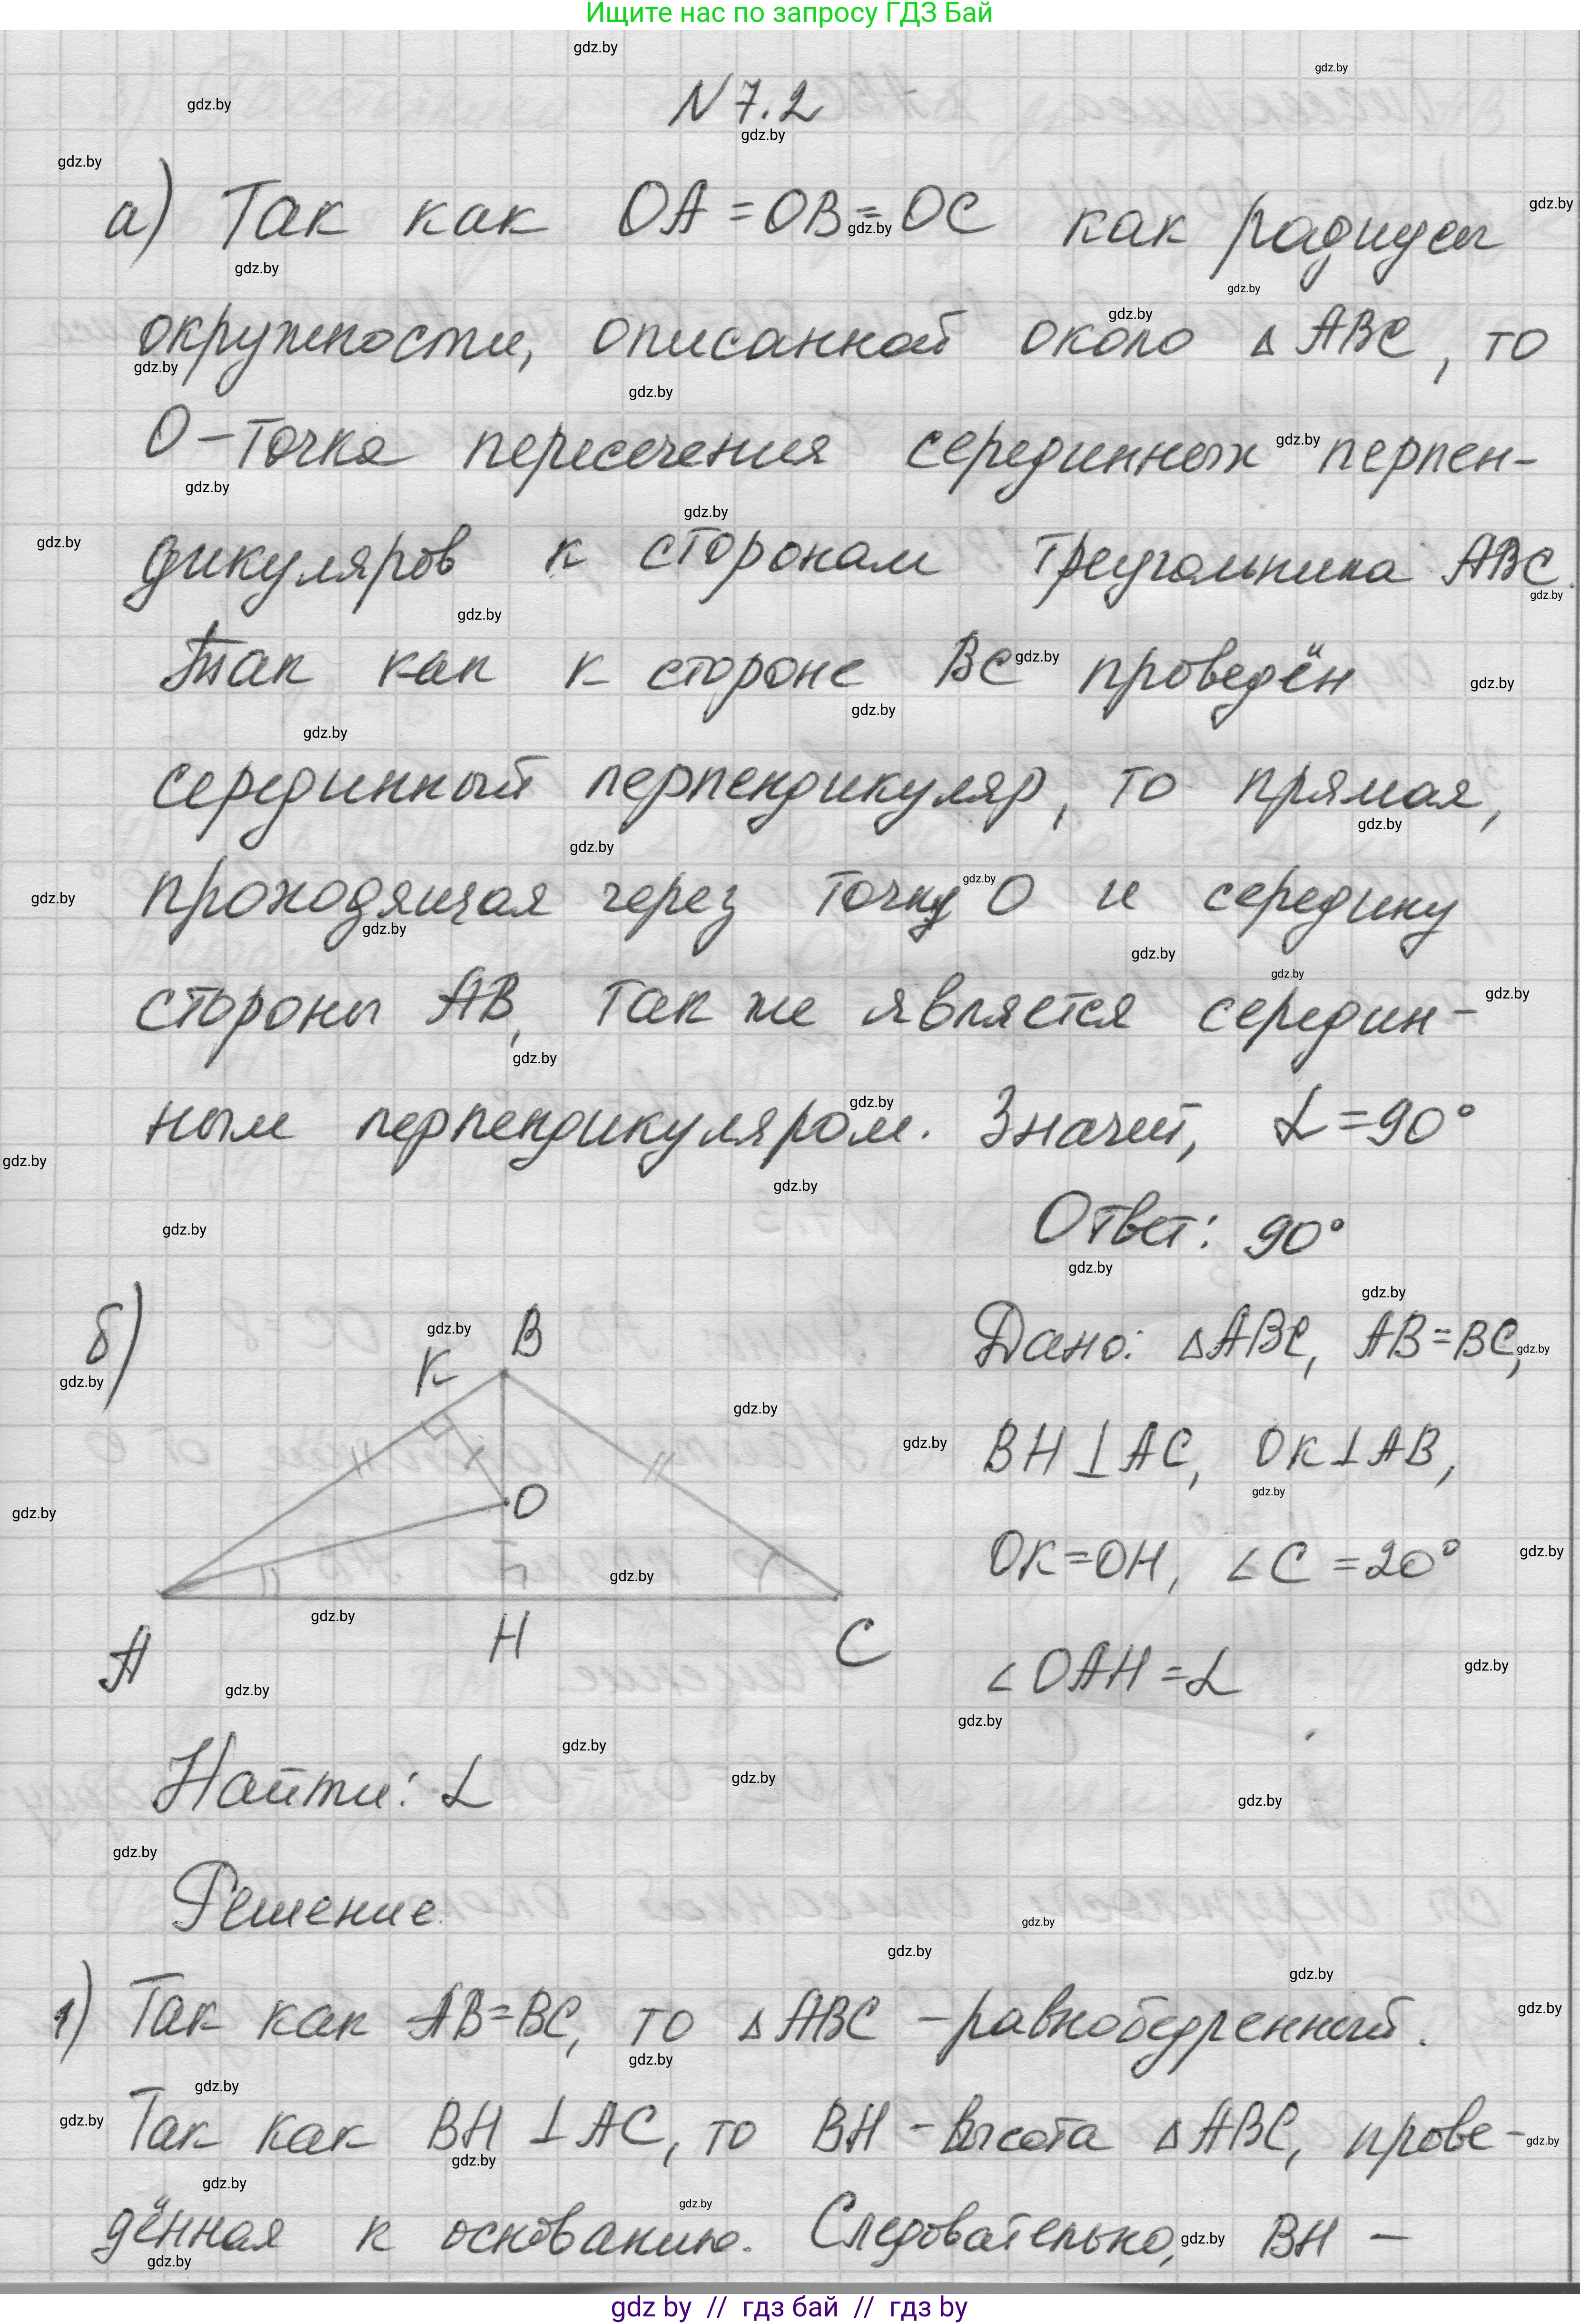 Ищите нас по запросу ГДЗ Бай
N 7.2
а) Так как OA = OB = OC как радиусы
окружности, описанной около △ ABC, то
O - точка пересечения серединных перпен-
дикуляров к сторонам треугольника ABC.
Так как к стороне BC проведён
серединный перпендикуляр, то прямая,
проходящая через точку O и середину
стороны AB, так же является середин-
ным перпендикуляром. Значит, α = 90°
Ответ: 90°
б)
K B
O
A H C
Дано: △ABC, AB=BC,
BH⊥AC, OK⊥AB,
OK=OH, ∠C=20°
∠OAH=α
Найти: α
Решение.
1) Так как AB=BC, то △ABC - равнобедренный.
Так как BH ⊥ AC, то BH - высота △ABC, прове-
дённая к основанию. Следовательно, BH -
gdz by // гдз бай // гдз by